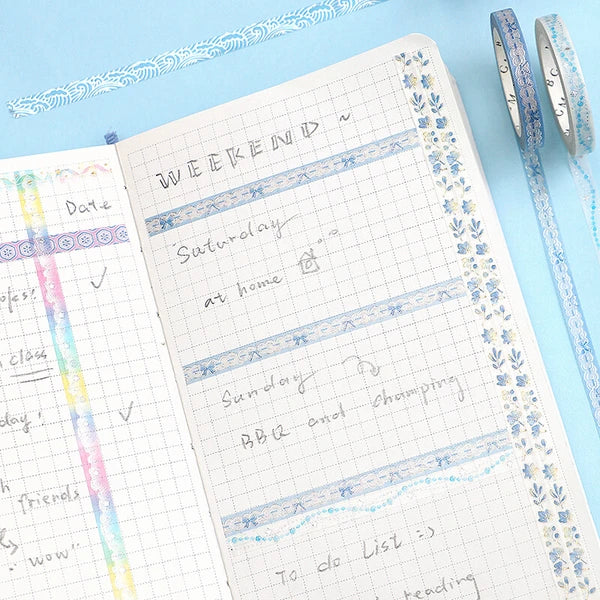 Date
class
day!
friends
"wow"
WEEKEND ~
Saturday
at home
Sunday
BBQ and champing
To do List :-)
reading